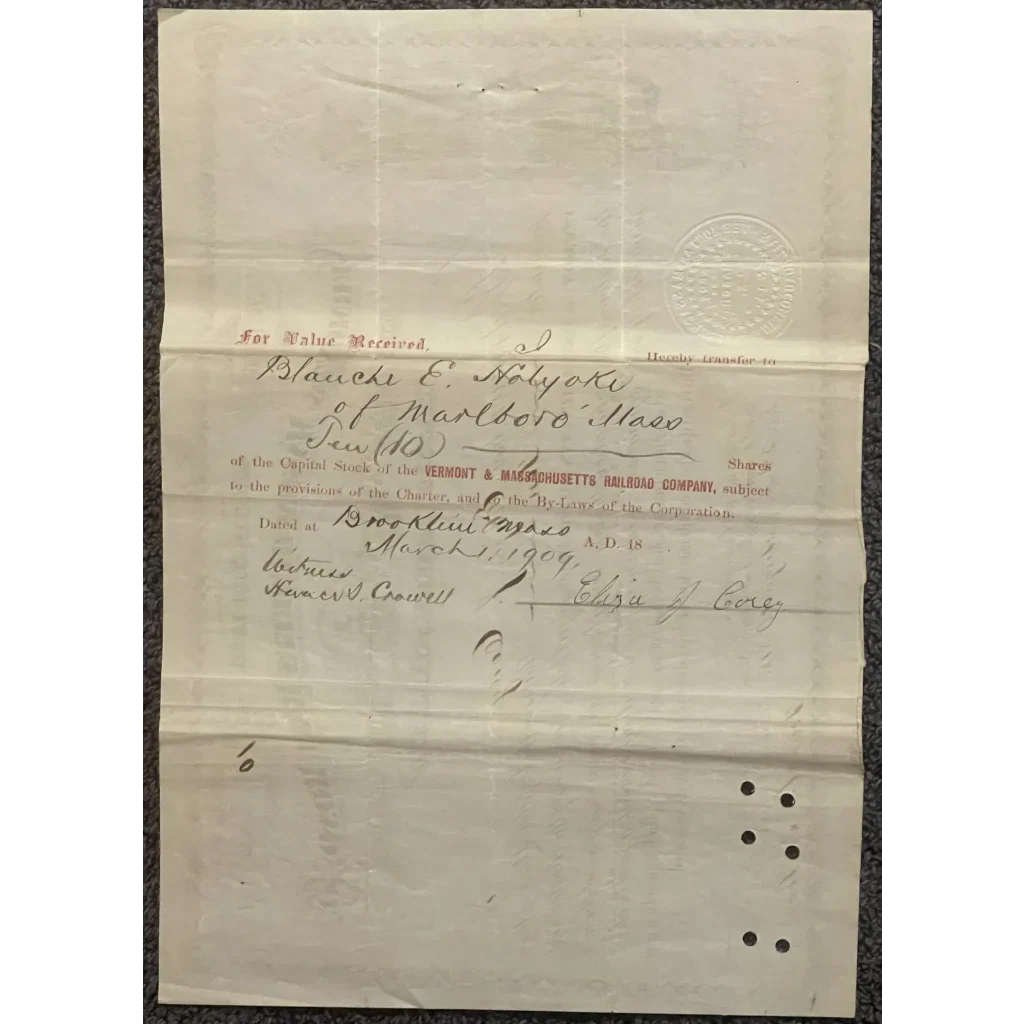 For Value Received, I Hereby transfer to
Blanche E. Holyoke
of Marlboro' Mass
Ten (10) Shares
of the Capital Stock of the VERMONT & MASSACHUSETTS RAILROAD COMPANY, subject
to the provisions of the Charter, and to the By-Laws of the Corporation.
Dated at Brookline Mass
March 1, 1909. A, D. 18
Witness
Crowell Eliza J Corey
10